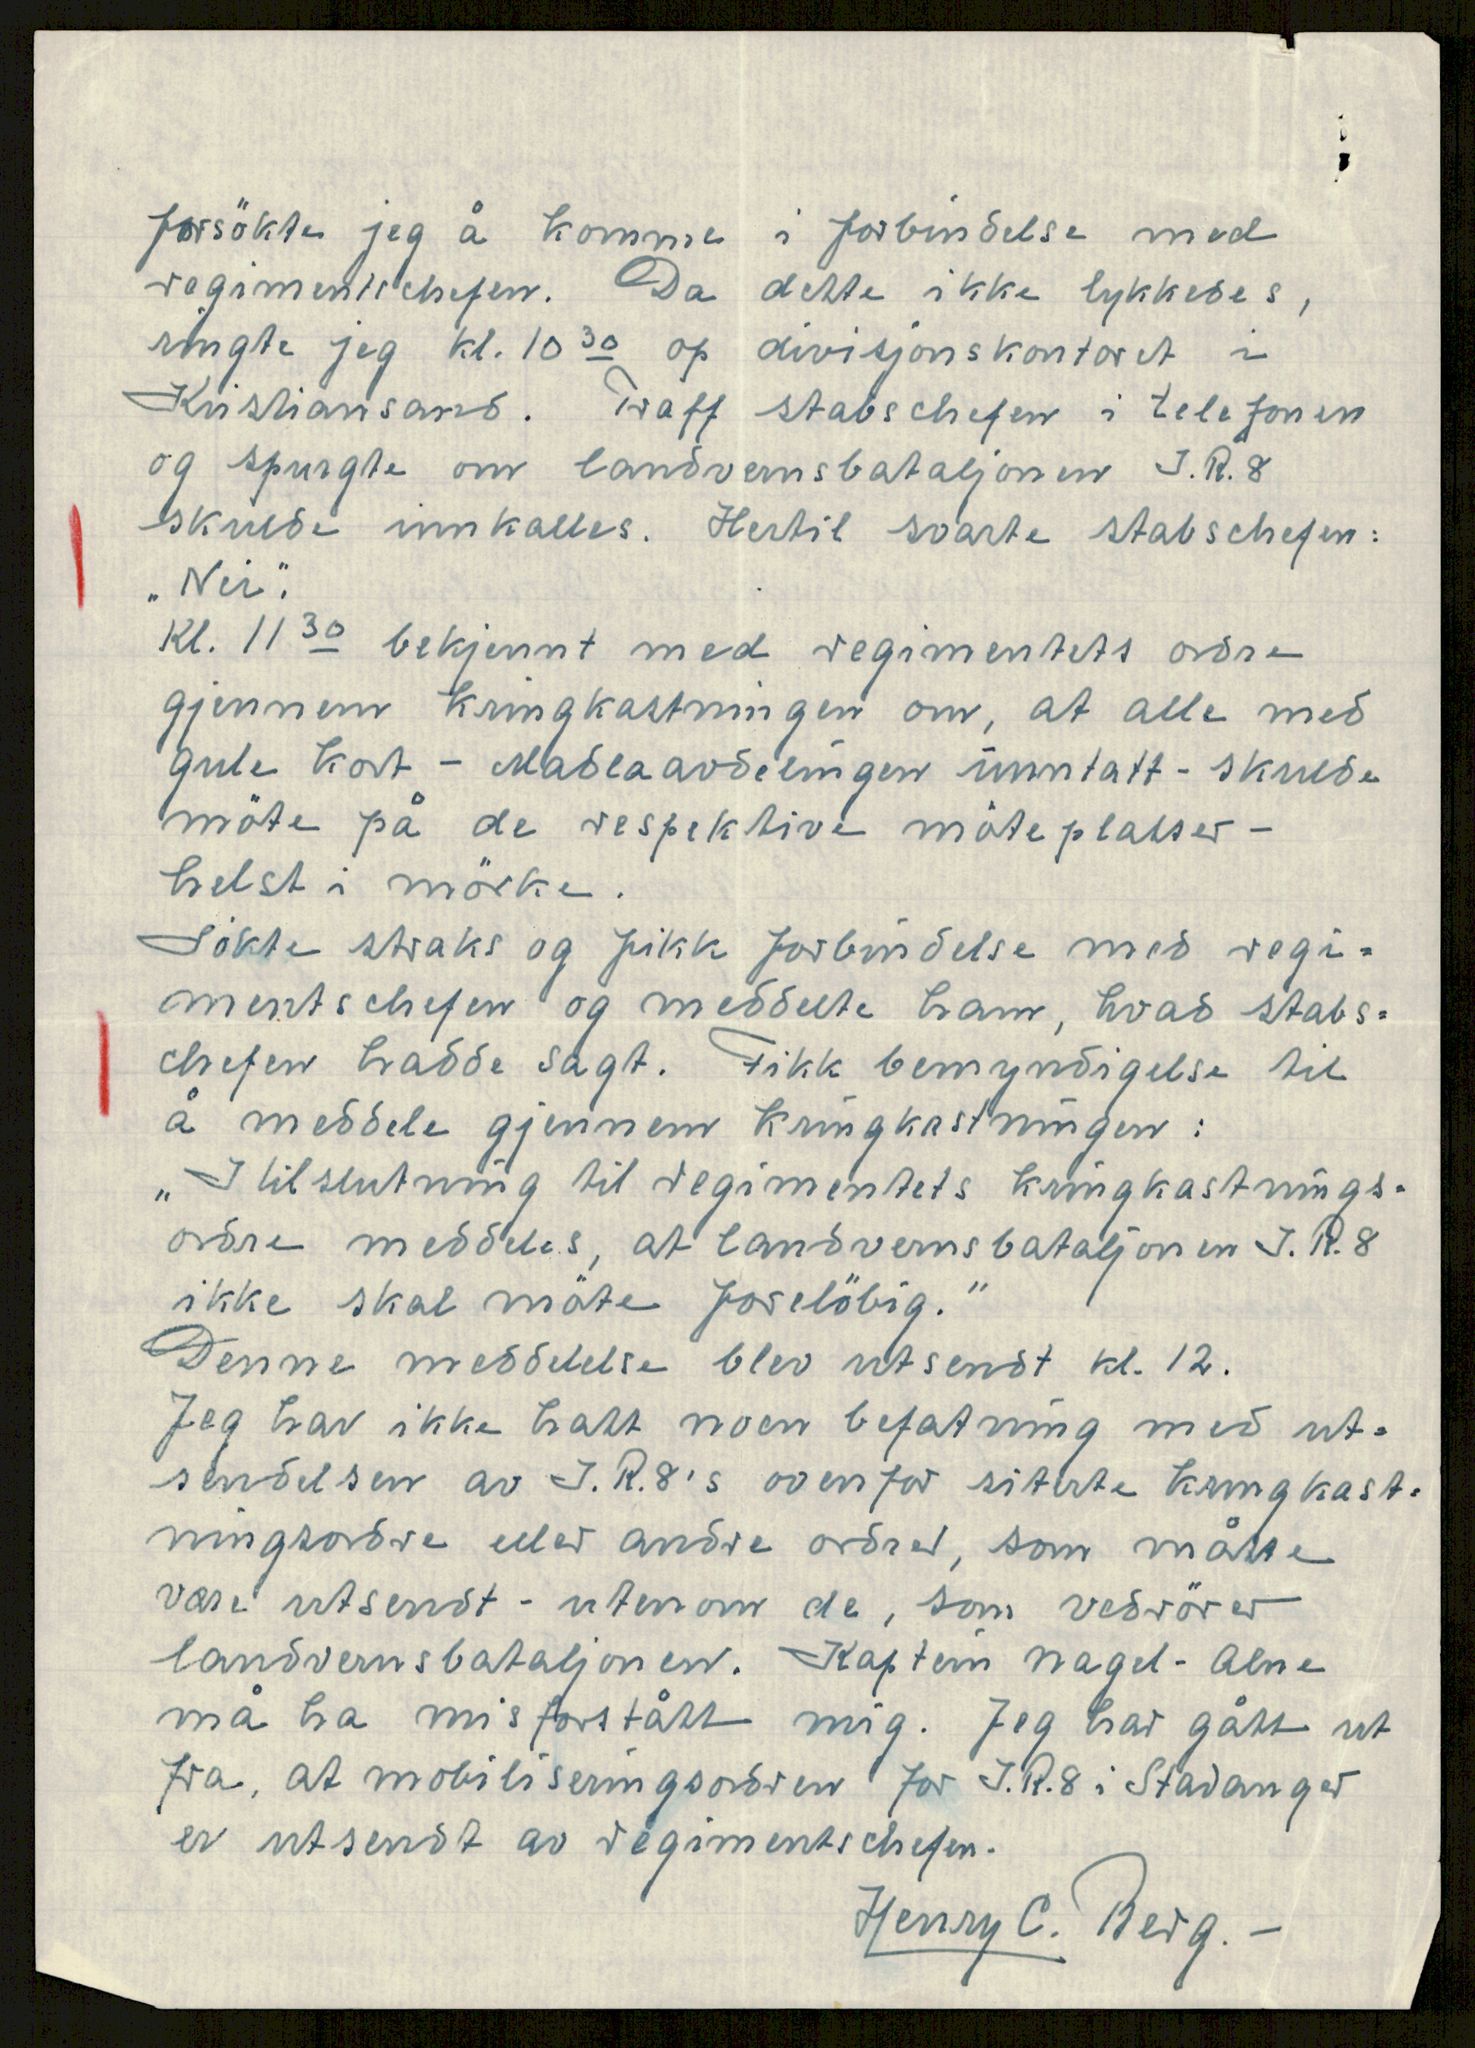 forsökte jeg å komme i forbindelse med
regimentschefen. Da dette ikke lykkedes,
ringte jeg kl. 10 30 op divisjonskontoret i
Kristiansand. Traff stabschefen i telefonen
og spurgte om landvernsbataljonen I.R.8
skulde innkalles. Hertil svarte stabschefen:
„Nei".
Kl. 11 30 bekjennt med regimentets ordre
gjennem kringkastningen om, at alle med
gule kort - Madlaavdelingen unntatt - skulde
möte på de respektive möteplatser -
helst i mörke.
Sökte straks og fikk forbindelse med regi=
mentschefen og meddelte ham, hvad stabs=
chefen hadde sagt. Fikk bemyndigelse til
å meddele gjennem kringkastningen:
„I tilslutning til regimentets kringkastnings=
ordre meddeles, at landvernsbataljonen I.R.8
ikke skal möte forelöbig."
Denne meddelelse blev utsendt kl. 12.
Jeg har ikke hatt noen befatning med ut=
sendelsen av I.R.8's ovenfor siterte kringkast=
ningsordre eller andre ordrer, som måtte
være utsendt - utenom de, som vedrörer
landvernsbataljonen. Kaptein Nagel-Alne
må ha misforstått mig. Jeg har gått ut
fra, at mobiliseringsordren for I.R.8 i Stavanger
er utsendt av regimentschefen.
Henry C. Berg. -